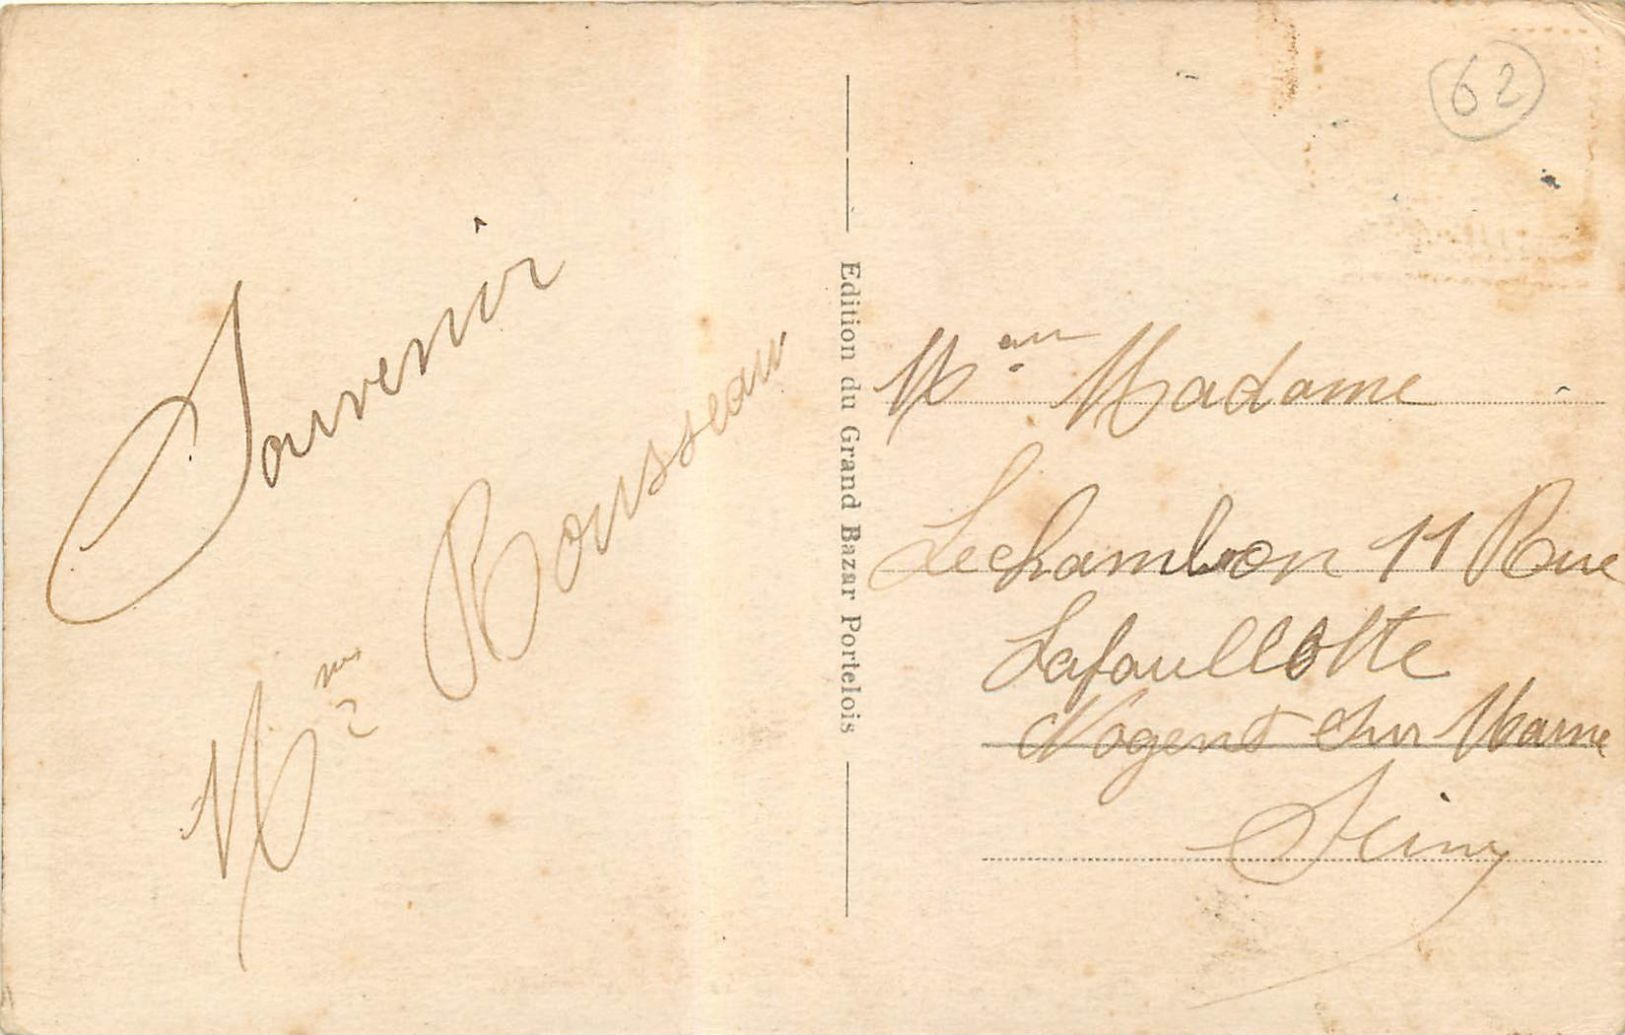 Souvenir
Mme Rousseau
Edition du Grand Bazar Portelois
62
M. au Madame
Lechambon 11 Rue
Lafoullotte
Nogent Sur Marne
Seine